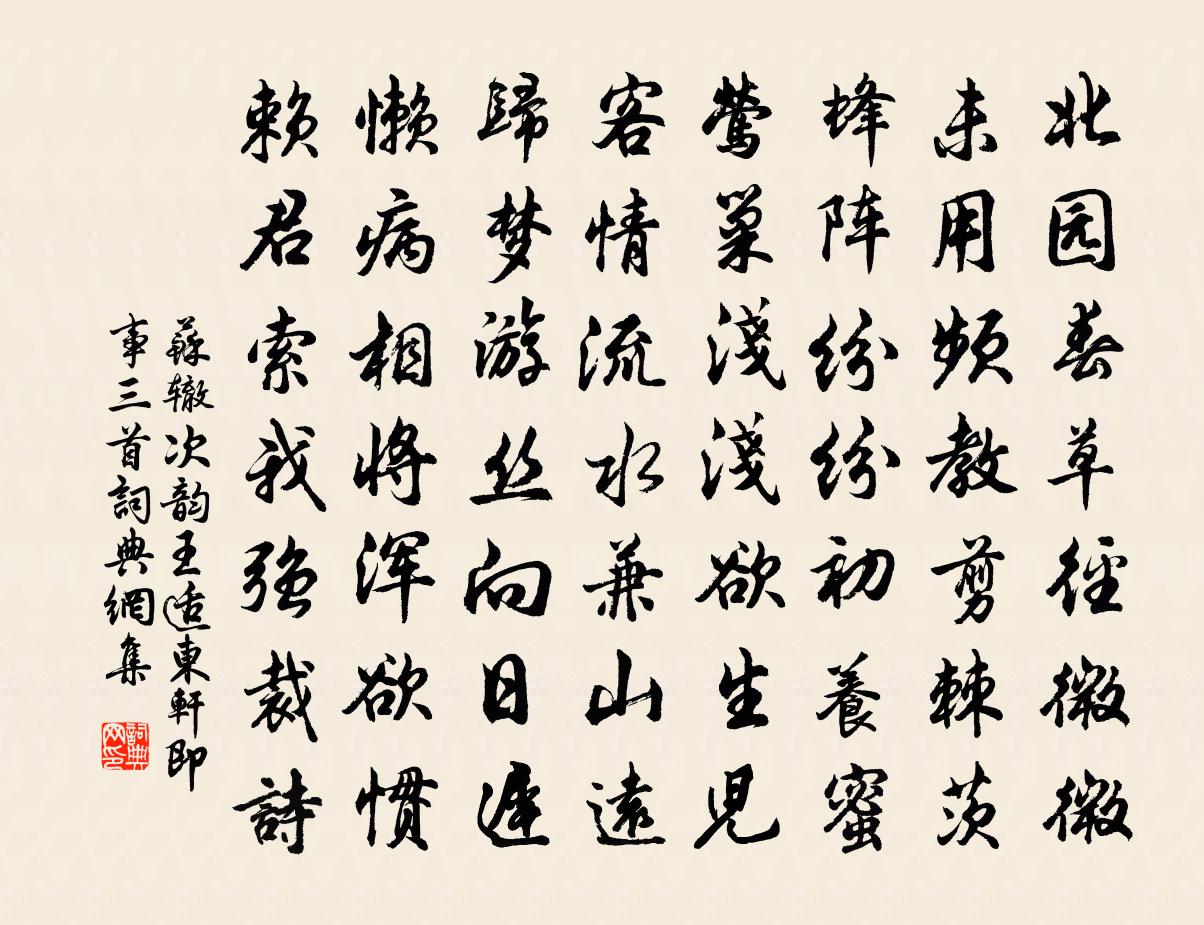 北园春草径微微
未用频教剪棘茨
蜂阵纷纷初養蜜
鶯巢淺淺欲生児
客情流水兼山遠
歸梦游丝向日遲
懒病相将浑欲惯
赖君索我强裁詩
蘇辙次韵王适東軒即
事三首詞典網集
詞典
网印